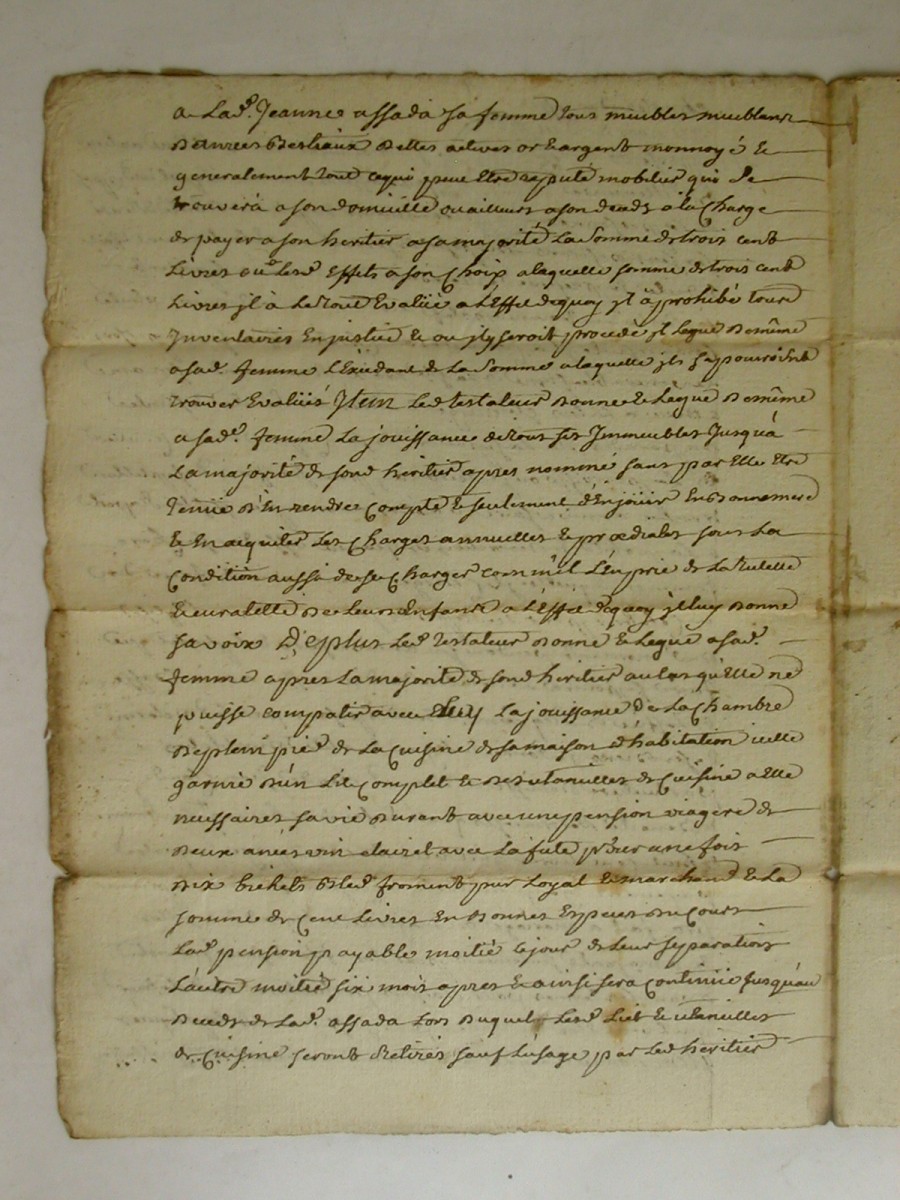 a Lad.e Jeanne assada sa femme tous meubles meublans
Denrées Bestiaux Dettes actives or & argent monnoyé &
generalement tout cequi peut Etre reputé mobilier qui Se
trouvera a son domicille ou ailleurs a son deceds a la Charge
de payer a son heritier a sa majorité La Somme de trois cent
Livres ou Lesd. Effets a son Choix a laquelle somme de trois cent
Livres jl à Le tout Evalüé a L'Effet dequoy jl à prohibé tous
Inventaires En justice & ou jl y seroit procedé jl Legue De même
a sad.e femme L'Excedant de La Somme a laquelle jls se pouroient
trouver Evalüés Item Led testateur Donne & Legue De même
a sad.e femme La jouissance de tous ses Immeubles Jusqu'à
La majorité de sond heritier apres nommé sans par Elle Etre
Tenüe D'En rendre Compte & seulement d'En joüir En Bonne mere
& En acquiter Les Charges annuelles & proediales sous La
Condition aussi de se Charger comm'il L'En prie de La tutelle
& curatelle De Leurs Enfants a L'Effet dequoy jl luy Donne
pouvoir D'eplus Led testateur Donne & Legue a sad.e
femme apres La majorité de sond heritier au Cas qu'Elle ne
puisse compatir avec Luy La jouissance de La Chambre
De plein pied de La Cuisine de sa maison d'habitation icelle
garnie D'un Lit Complet & De Utancilles de Cuisine a Elle
necessaires sa vie Durant avec une pension viagere de
Deux anées vin clairet avec La futé pour une fois
Dix bichets Bled froment pur Loyal & marchand & La
somme de Cent Livres En Bonnes Especes Du Cours
Lad.e pension payable moitié le jour de Leur separation
L'autre moitié six mois apres & ainsi sera Continüé Jusqu'au
Deceds de Lad.e assada Lors Duquel Lesd Lict & Utancilles
de Cuisine seront Retirés sauf L'usage par Led heritier